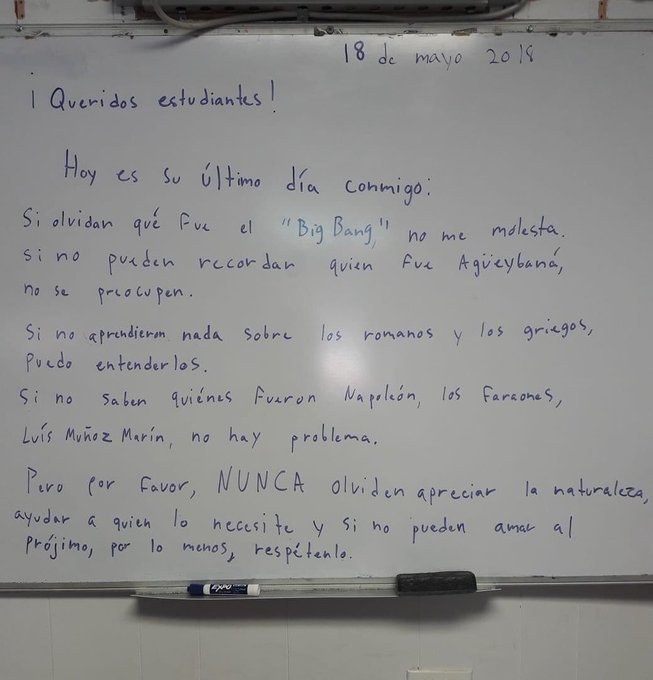 18 de mayo 2018
¡Queridos estudiantes!
Hoy es su último día conmigo:
Si olvidan qué fue el "Big Bang," no me molesta.
Si no pueden recordar quien fue Agüeybaná,
no se preocupen.
Si no aprendieron nada sobre los romanos y los griegos,
puedo entenderlos.
Si no saben quiénes fueron Napoleón, los Faraones,
Luís Muñoz Marín, no hay problema.
Pero por favor, NUNCA olviden apreciar la naturaleza,
ayudar a quien lo necesite y si no pueden amar al
prójimo, por lo menos, respétenlo.
EXPO